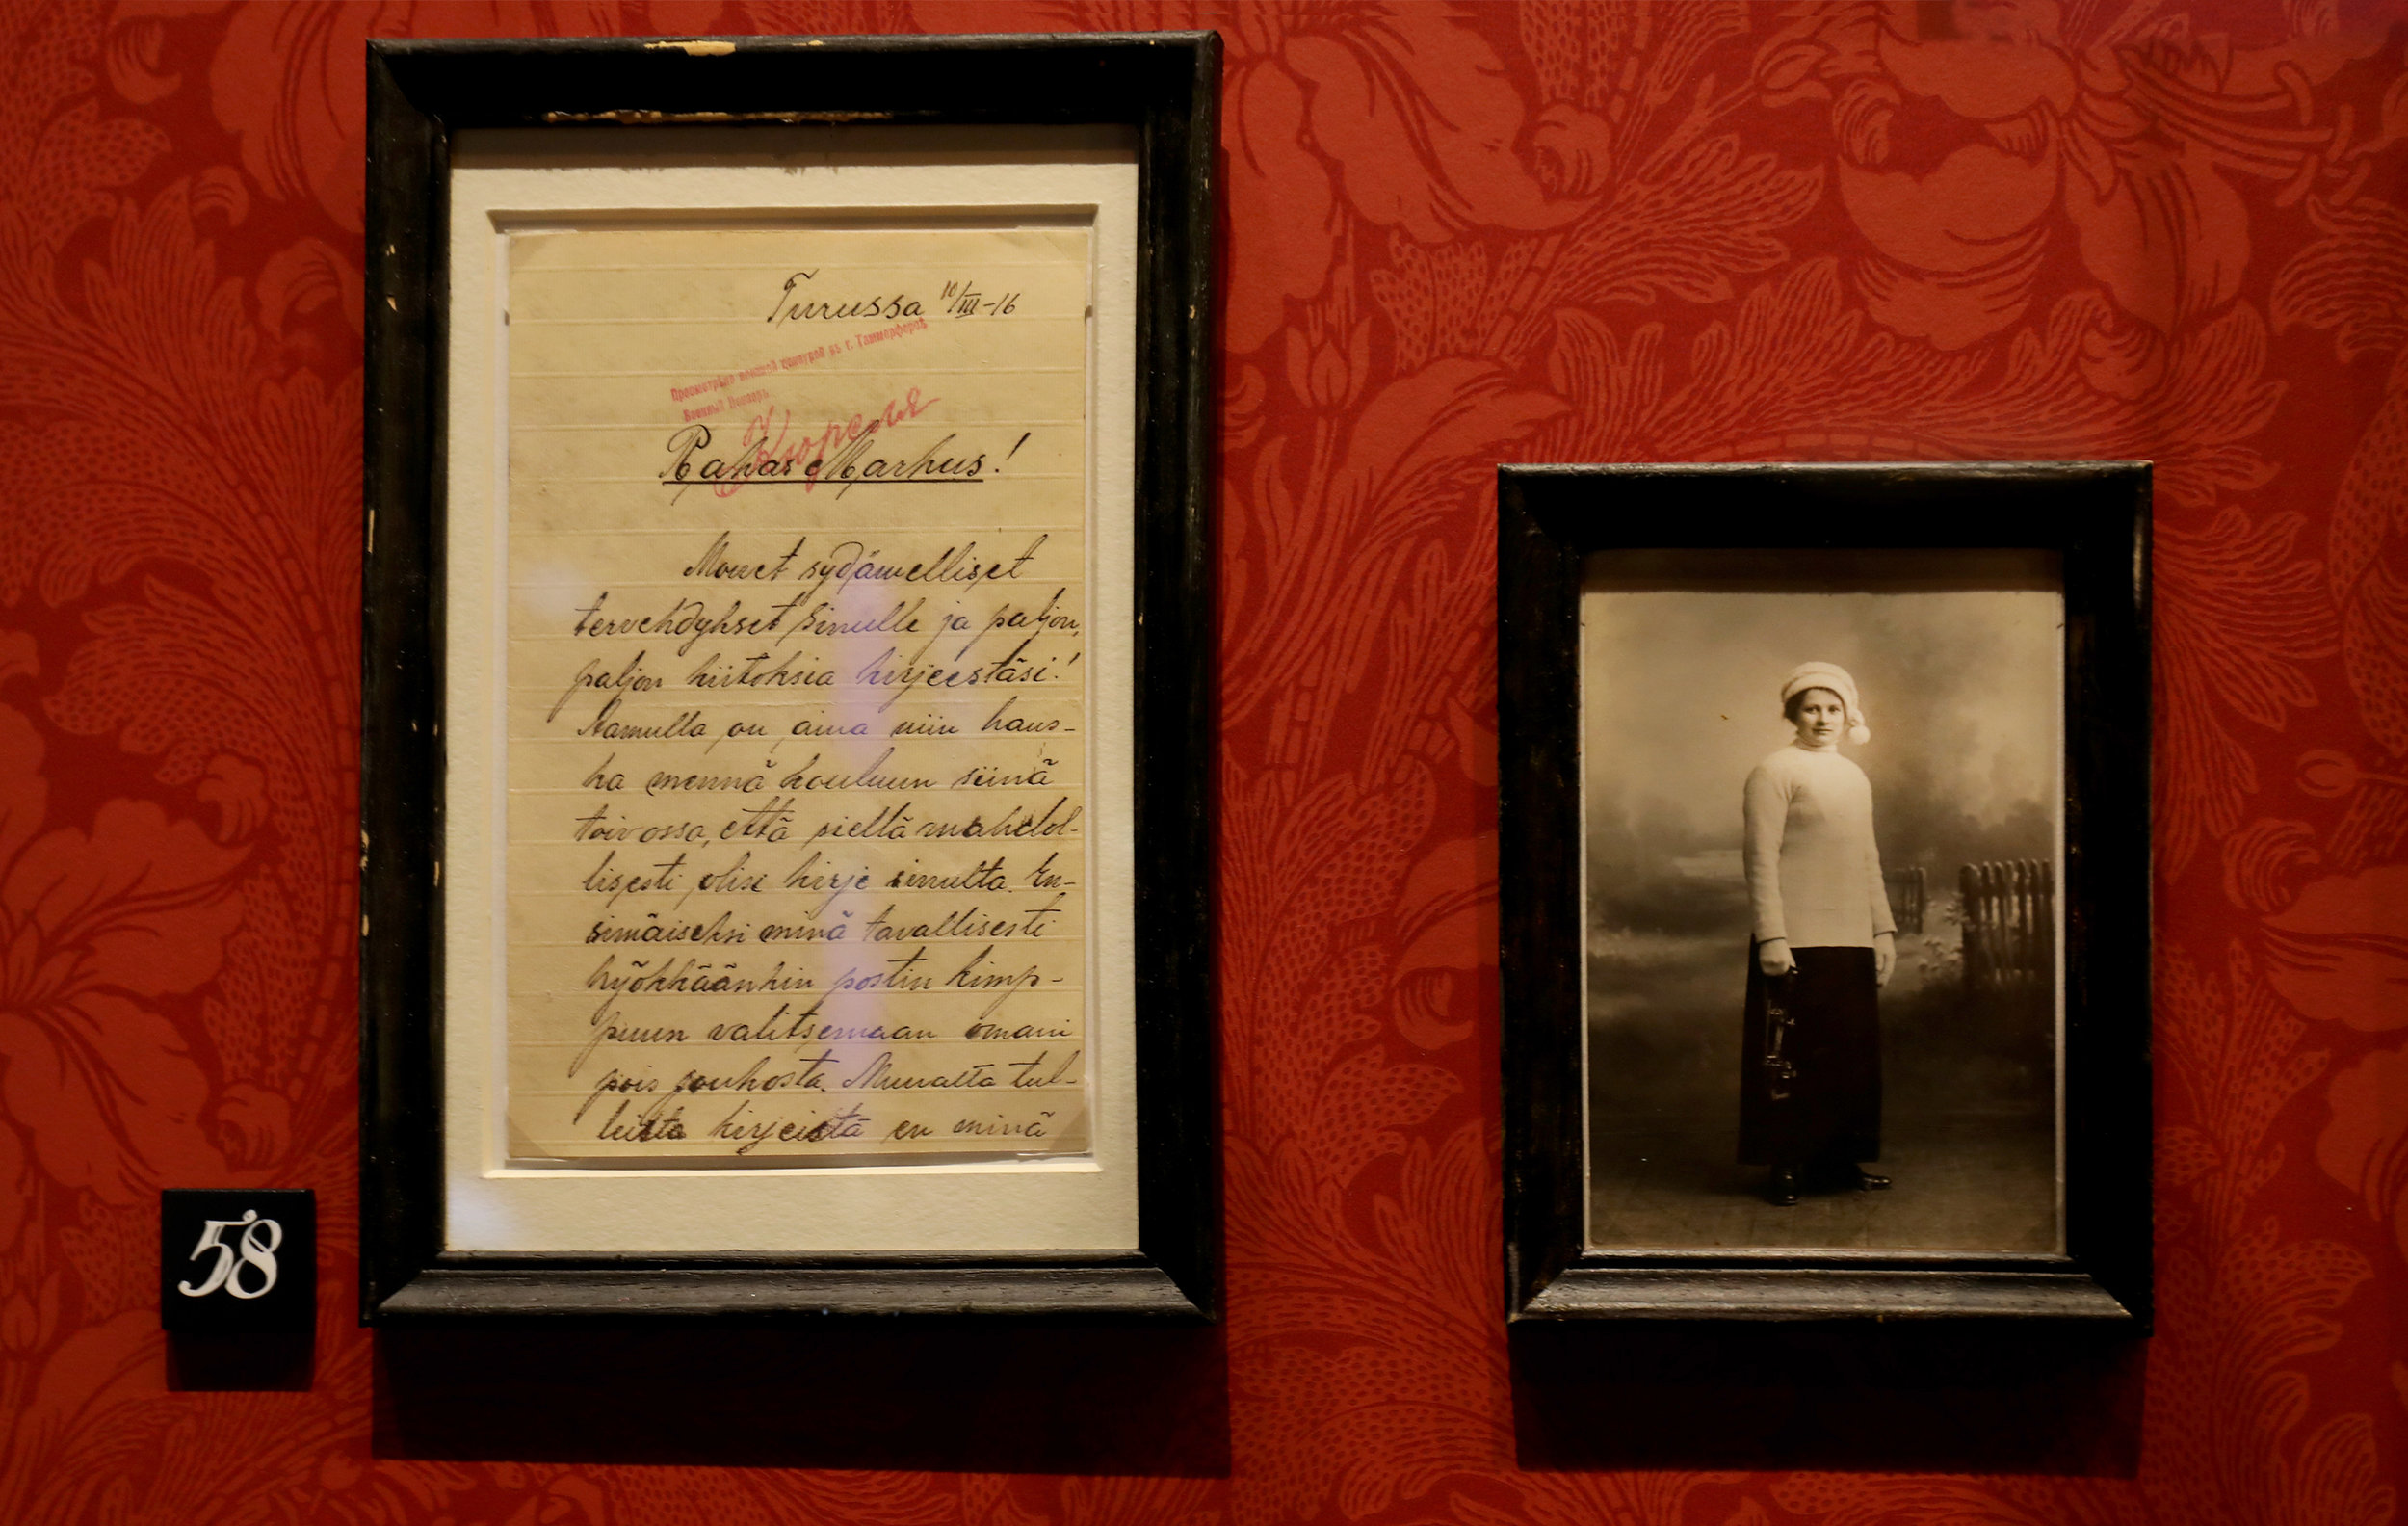 Turussa 10/III-16
Просмотрѣно военной цензурой въ г. Таммерфорсѣ
Военный Цензоръ
Rakas Markus!
Monet sydämelliset
tervehdykset Sinulle ja paljon,
paljon kiitoksia kirjeestäsi!
Aamulla on aina niin haus-
ka mennä kouluun siinä
toivossa, että sieltä mahdol-
lisesti olisi kirje sinulta. En-
simäiseksi minä tavallisesti
hyökkäänkin postin kimp-
puun valitsemaan omani
pois joukosta. Muualta tul-
leista kirjeistä en minä
58